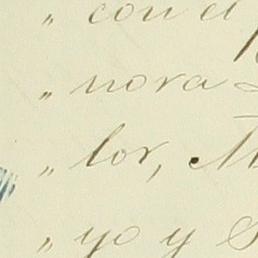 „ con el
„ nora
„ lor,
„ yo y